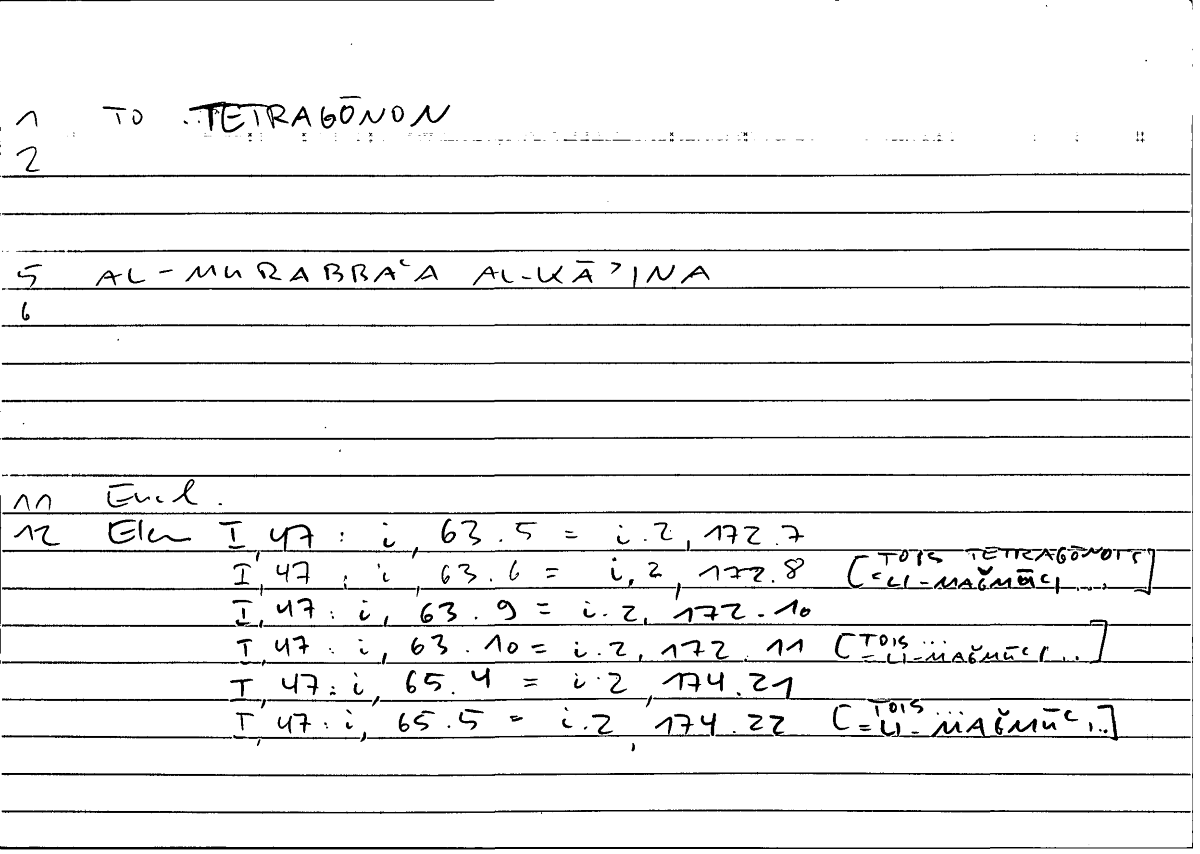 1 TO TETRAGŌNON
2
5 AL-MURABBAʿA AL-KĀʾINA
6
11 Eucl.
12 Elem I, 47 : i, 63.5 = i.2, 172.7
I, 47 : i, 63.6 = i.2, 172.8 [TOIS TETRAGŌNOIS = LI-MAǦMŪʿI ...]
I, 47 : i, 63.9 = i.2, 172.10
I, 47 : i, 63.10 = i.2, 172.11 [TOIS ... = LI-MAǦMŪʿI ...]
I, 47 : i, 65.4 = i.2, 174.21
I, 47 : i, 65.5 = i.2, 174.22 [TOIS ... = LI-MAǦMŪʿ ...]